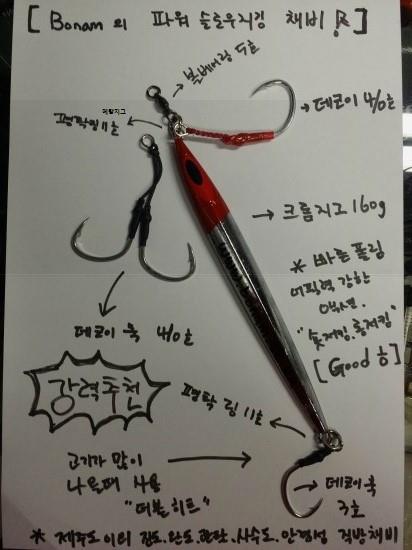 [ Bonam의 파워 슬로우지깅 채비 ]
볼베어링 5호
메탈지그
평탁링 11호
→ 데코이 4/0호
→ 크롬지그 160g
* 바른 폴링
어필력 강한
액션.
"숏저킹. 롱저킹"
[Good 흥]
데코이 훅 4/0호
강력추천
평탁 링 11호
고기가 많이
나올때 사용
"더블히트"
데코이훅
3호
* 제주도 이외 진도.완도.관탈.사수도.안경섬 직방채비